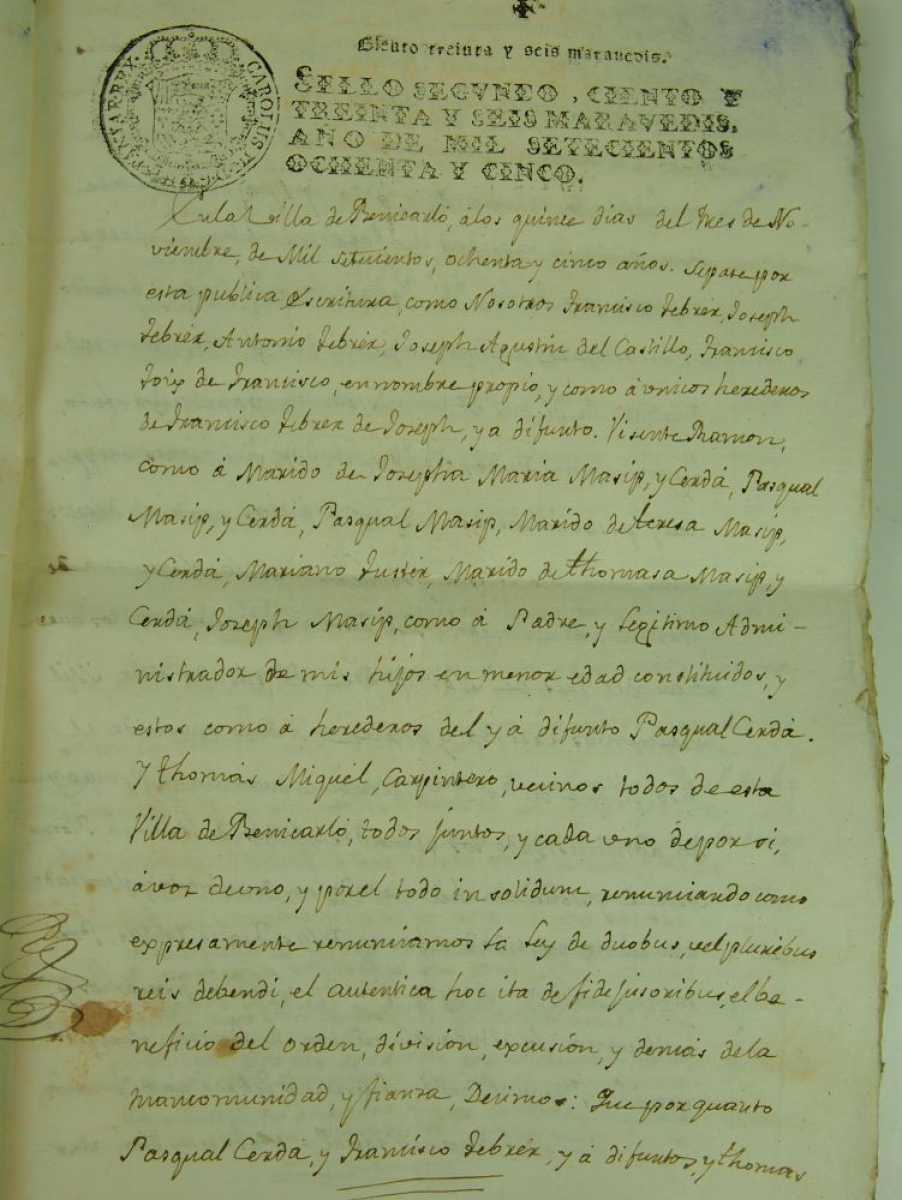 Ciento treinta y seis marauedis.
SELLO SEGVNDO, CIENTO Y
TREINTA Y SEIS MARAVEDIS,
AÑO DE MIL SETECIENTOS
OCHENTA Y CINCO.
CAROLUS HISPANIAR REX
En la Villa de Benicarló, á los quince dias del Mes de No-
viembre, de Mil setecientos, ochenta y cinco años. Sepase por
esta publica escritura, como Nosotros Francisco Febrér, Joseph
Febrér, Antonio Febrér, Joseph Agustin del Castillo, Francisco
Foix de Francisco, en nombre propio, y como á vnicos herederos
de Francisco Febrer de Joseph, ya difunto. Visente Ramon,
como á Marido de Josepha Maria Masip, y Cerdá, Pasqual
Masip, y Cerdá, Pasqual Masip, Marido de teresa Masip,
y Cerdá, Mariano Fustér, Marido de thomasa Masip, y
Cerdá, Joseph Masip, como á Padre, y Legitimo Admi-
nistrador de mis hijos en menor edad constituidos, y
estos como á herederos del yá difunto Pasqual Cerdá.
Y thomás Miguél, Carpintero, vecinos todos de esta
Villa de Benicarló, todos juntos, y cada vno depor si,
ávoz deuno, y porel todo in solidum, renunciando como
expresamente renunciamos la Ley de duobus, vel pluribus
reis debendi, el autentica hoc ita de fidejusoribus, el be-
neficio del orden, división, excusión, y demás dela
mancomunidad, y fianza, Decimos: Que porquanto
Pasqual Cerdá, y Francisco Febrér, yá difuntos, y thomas